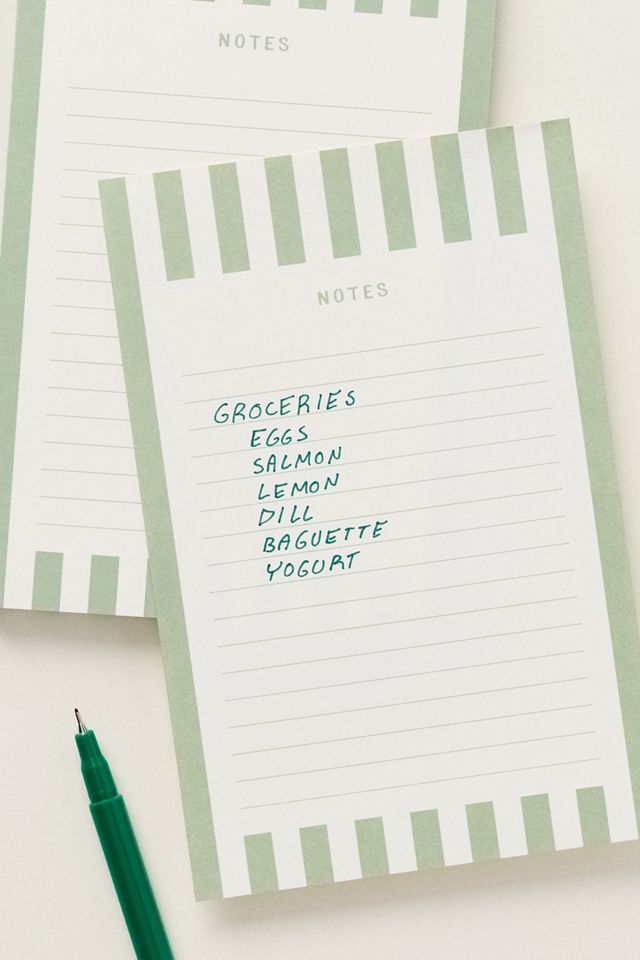 NOTES
NOTES
GROCERIES
EGGS
SALMON
LEMON
DILL
BAGUETTE
YOGURT